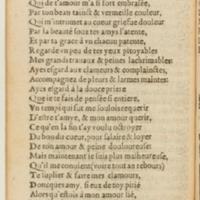 Qui de t'amour m'a si fort embrasée,
Par ton beau tainct & vermeille couleur,
Qui m'introumet au coeur griefue douleur
Par la beauté sous tes amys latente,
Et par ta grace à vn chacun patente,
Regarde vn peu de tes yeux pitoyables
Mes grands trauaux & peines lachrimables:
Ayes esgard aux clameurs & complainctes,
Accompagnées de pleurs & larmes maintes
Ayes esgard à la douce priere
Que ie te fais de pensée si entiere,
Vn temps i qui fut me vouloit requerir
D'estre t'amye, & mon amour querir,
Ce qu'en la fin t'ay voulu octroyer
Du bon du cueur, pour salaire & loyer
De ton amour & peine douloureuse:
Mais maintenant ie suis plus malheureuse,
Qu'il me conuient (voire tout au rebours)
Te suplier & faire mes clamours,
Doncques amy, si eus de toy pitié
Alors qu'estois à mon amour lié,